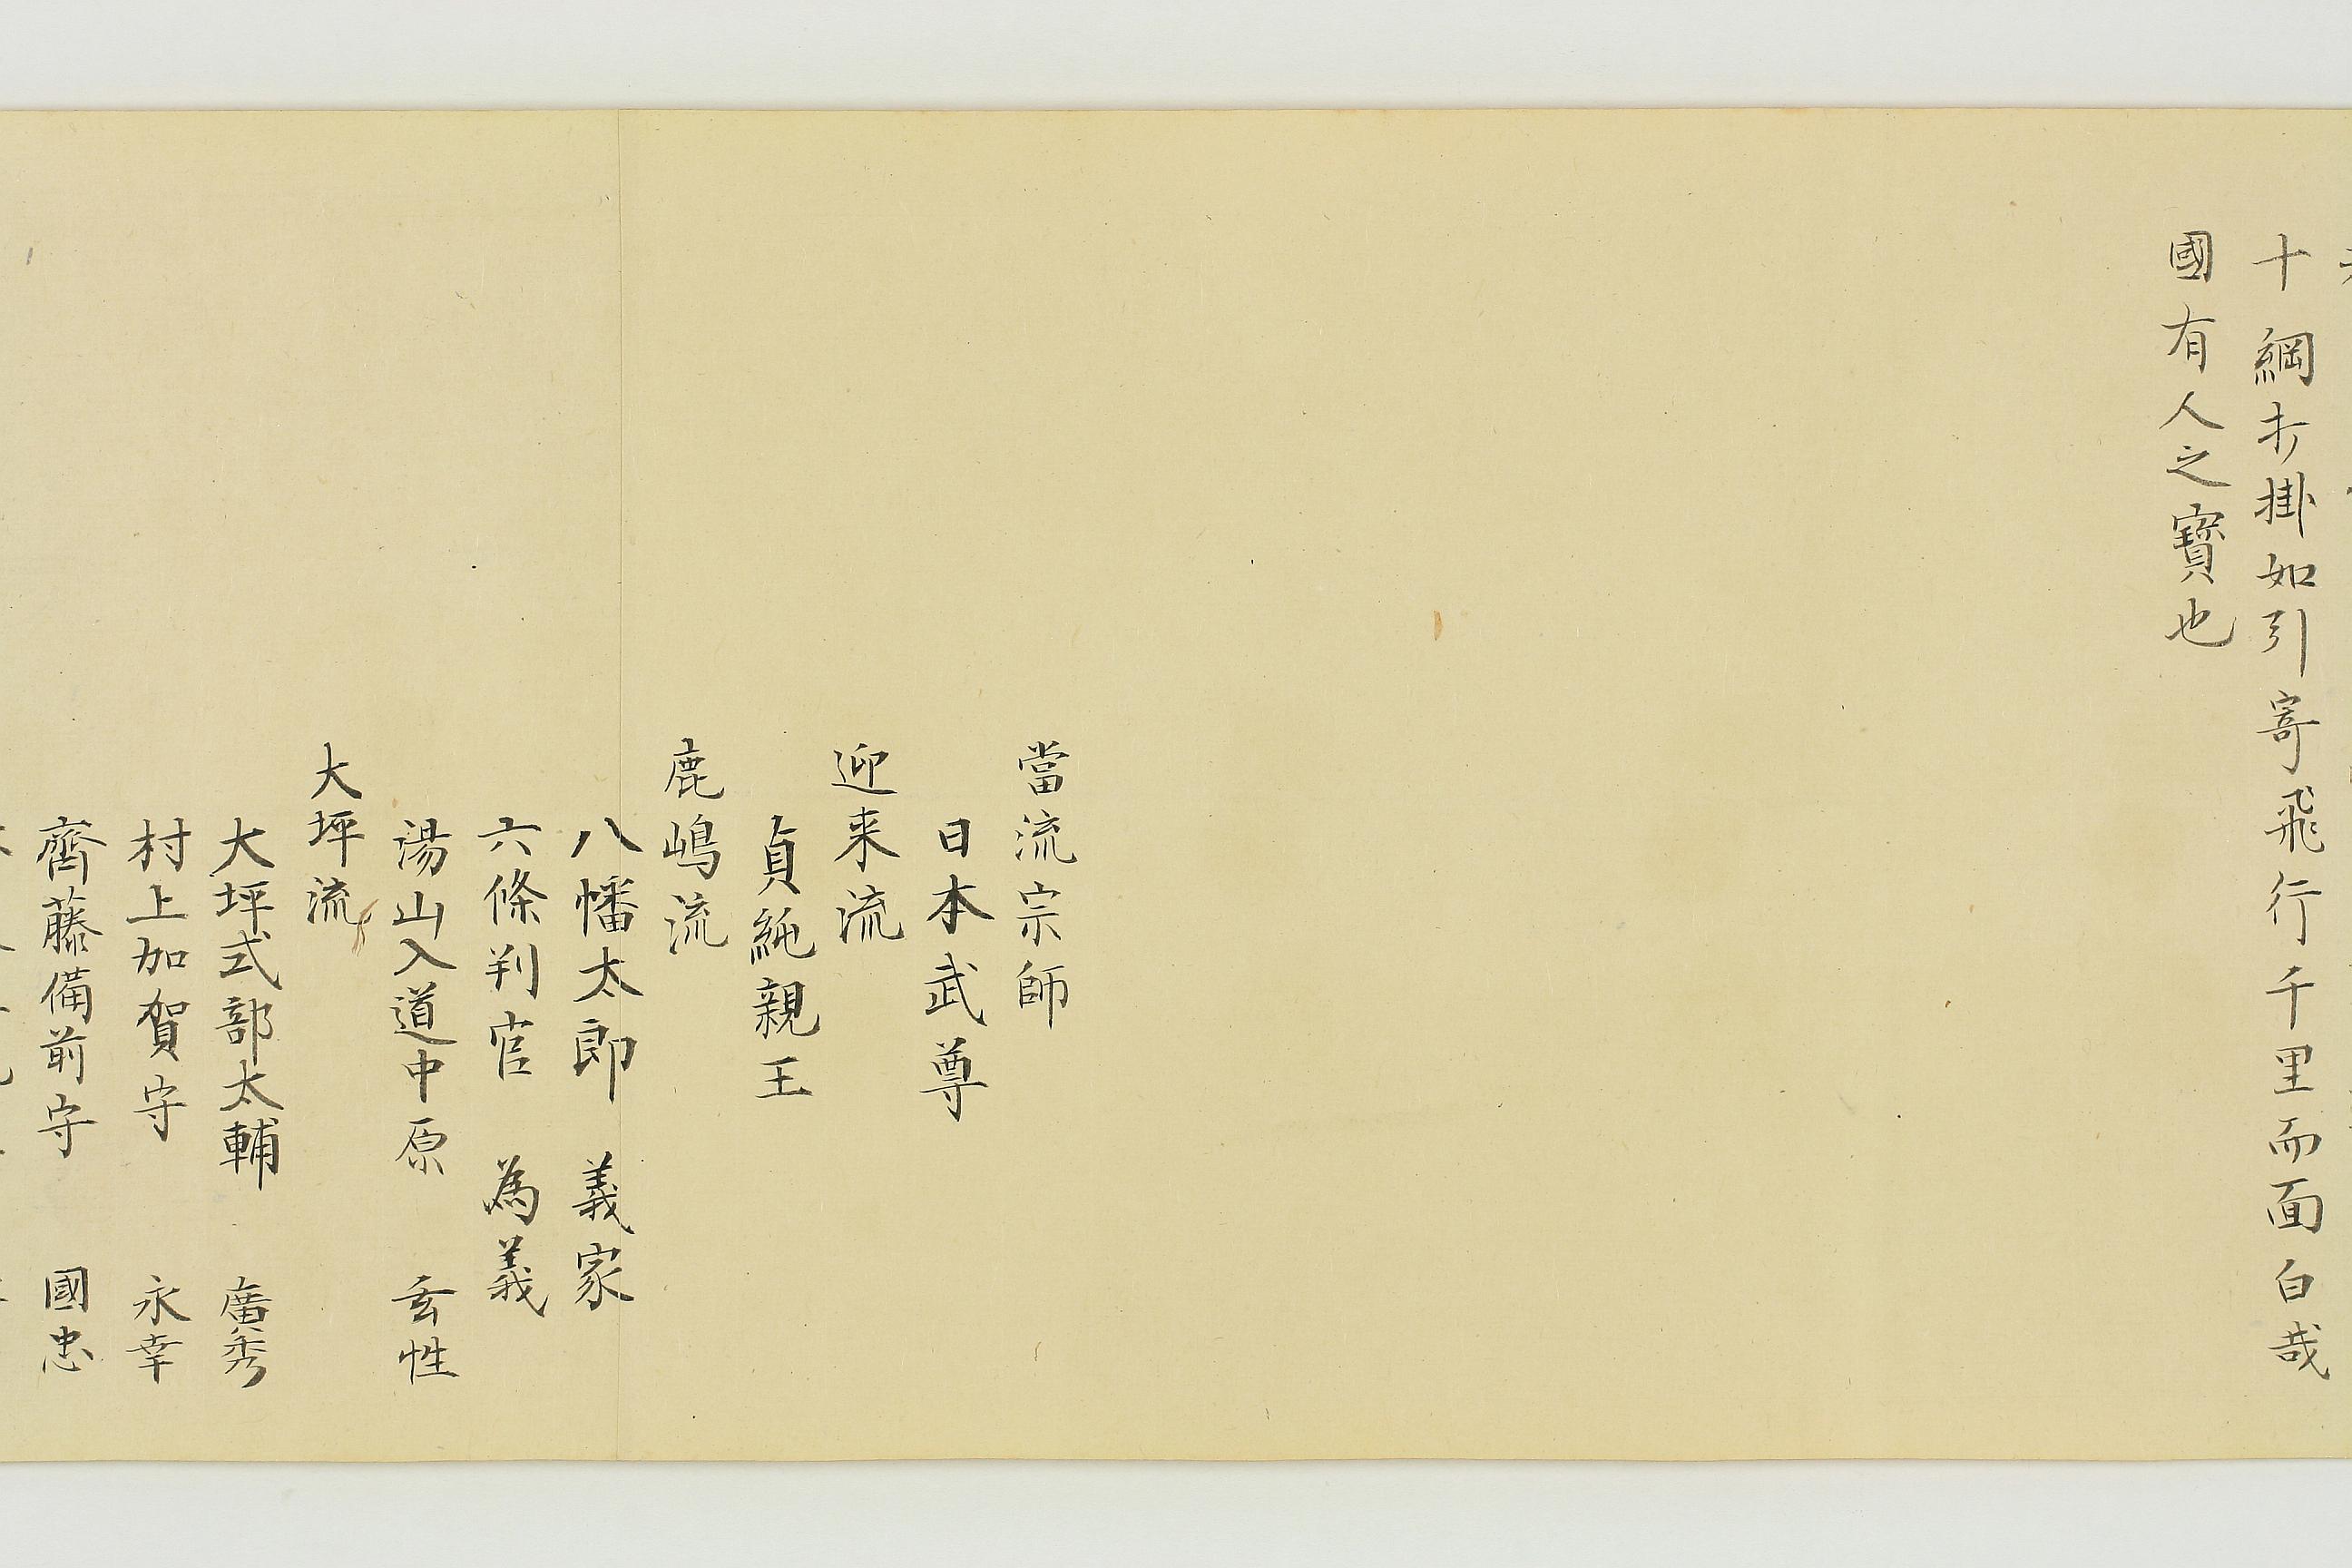 十綱打掛如引寄飛行千里而面白哉
國有人之寶也
當流宗師
日本武尊
迎来流
貞純親王
鹿嶋流
八幡太郎 義家
六條判官 為義
湯山入道中原 玄性
大坪流
大坪式部太輔 廣秀
村上加賀守 永幸
齊藤備前守 國忠